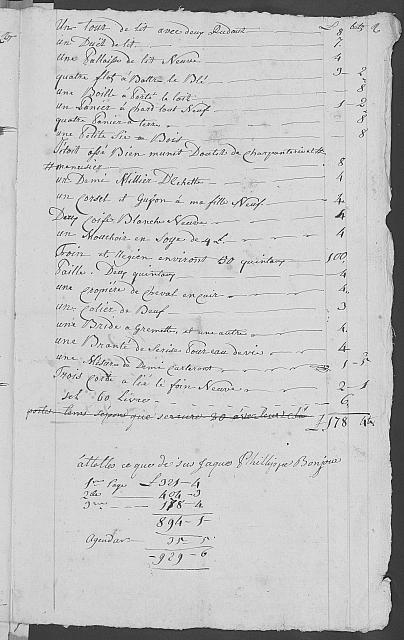 £ btz
Un tour de lit avec deux 8
un Duët de lit 7
une Paillasse de lit Neuve 4
quatre flos à Battre le Blé 3 2
une Boille à Porté le lait 8
un Panier à chard tout Neuf 1 2
quatre Panier a terre 8
une Petite Sie a Bois 8
Jétoit assé Bien munit Doutil de Charpanterie et de
# menuisier 8
un Demi Millier D'Echelle 4
un corset et a ma fille Neuf 4
Deux coiffe Blanche Neuve 4
un Mouchoir en Soye de 4 L. 4
foin et Regien environt 30 quintaux 100
Paille. Deux quintaux 4
une cropiére de cheval en cuir 4
un colier de Beuf 3
une Bride à et une autre 4
une Brante de Serise Pour eau de vie 4
une Mesure de Demi carteront 1 5
Trois corde a lié le foin Neuve 2 1
sel 60 Livres 6
£ 178 4
attelles ce que de sus Jaques Phillippe Bonjour
1re Page £ 321-4
2de 424-3
3me 178-4
894-1
35 5
929-6